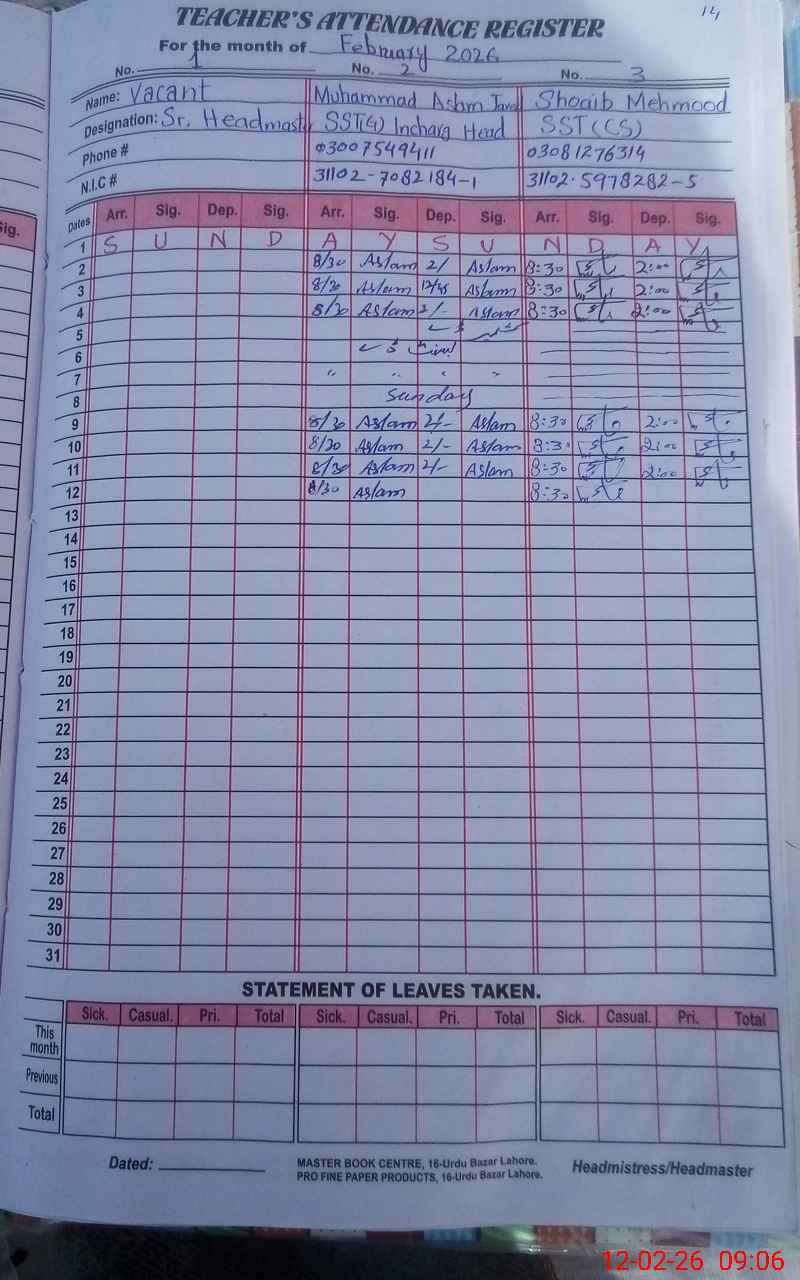 14
TEACHER'S ATTENDANCE REGISTER
For the month of February 2026
No. 1 No. 2 No. 3
Name: Vacant Muhammad Aslm Shoaib Mehmood
Designation: Sr. Headmaster SST(G) Incharg Head SST (CS)
Phone # 03007549411 03081276314
N.I.C # 31102-7082184-1 31102-5978282-5
Dates Arr. Sig. Dep. Sig. Arr. Sig. Dep. Sig. Arr. Sig. Dep. Sig.
1 S U N D A Y S U N D A Y
2 8/30 Aslam 2/ Aslam 8:30 2:00
3 8/30 Aslam 12/45 Aslam 8:30 2:00
4 8/30 Aslam 2/- Aslam 8:30 2:00
5
6
7 " " " "
8 Sunday
9 8/30 Aslam 2/- Aslam 8:30 2:00
10 8/30 Aslam 2/- Aslam 8:30 2:00
11 8/30 Aslam 2/- Aslam 8:30 2:00
12 8/30 Aslam 8:30
13
14
15
16
17
18
19
20
21
22
23
24
25
26
27
28
29
30
31
STATEMENT OF LEAVES TAKEN.
Sick. Casual. Pri. Total Sick. Casual. Pri. Total Sick. Casual. Pri. Total
This month
Previous
Total
Dated: MASTER BOOK CENTRE, 16-Urdu Bazar Lahore. Headmistress/Headmaster
PRO FINE PAPER PRODUCTS, 16-Urdu Bazar Lahore.
12-02-26 09:06